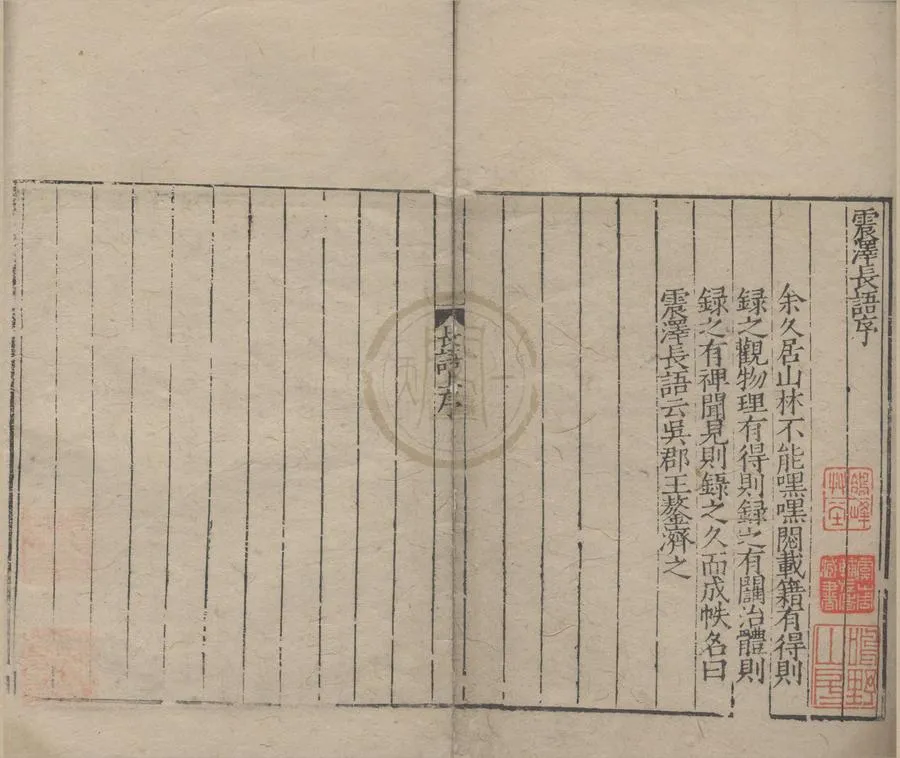 震澤長語序
余久居山林不能嘿嘿閱載籍有得則
録之觀物理有得則録之有關治體則
録之有裨聞見則錄之久而成帙名曰
震澤長語云吳郡王鏊濟之
長語序